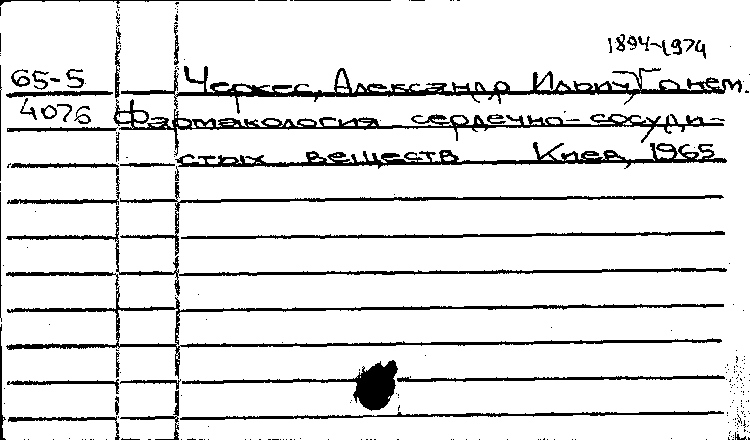 1894-1974
65-5 Черкес, Александр Ильич
4076 Фармакология сердечно-сосуди-
стых веществ Киев, 1965